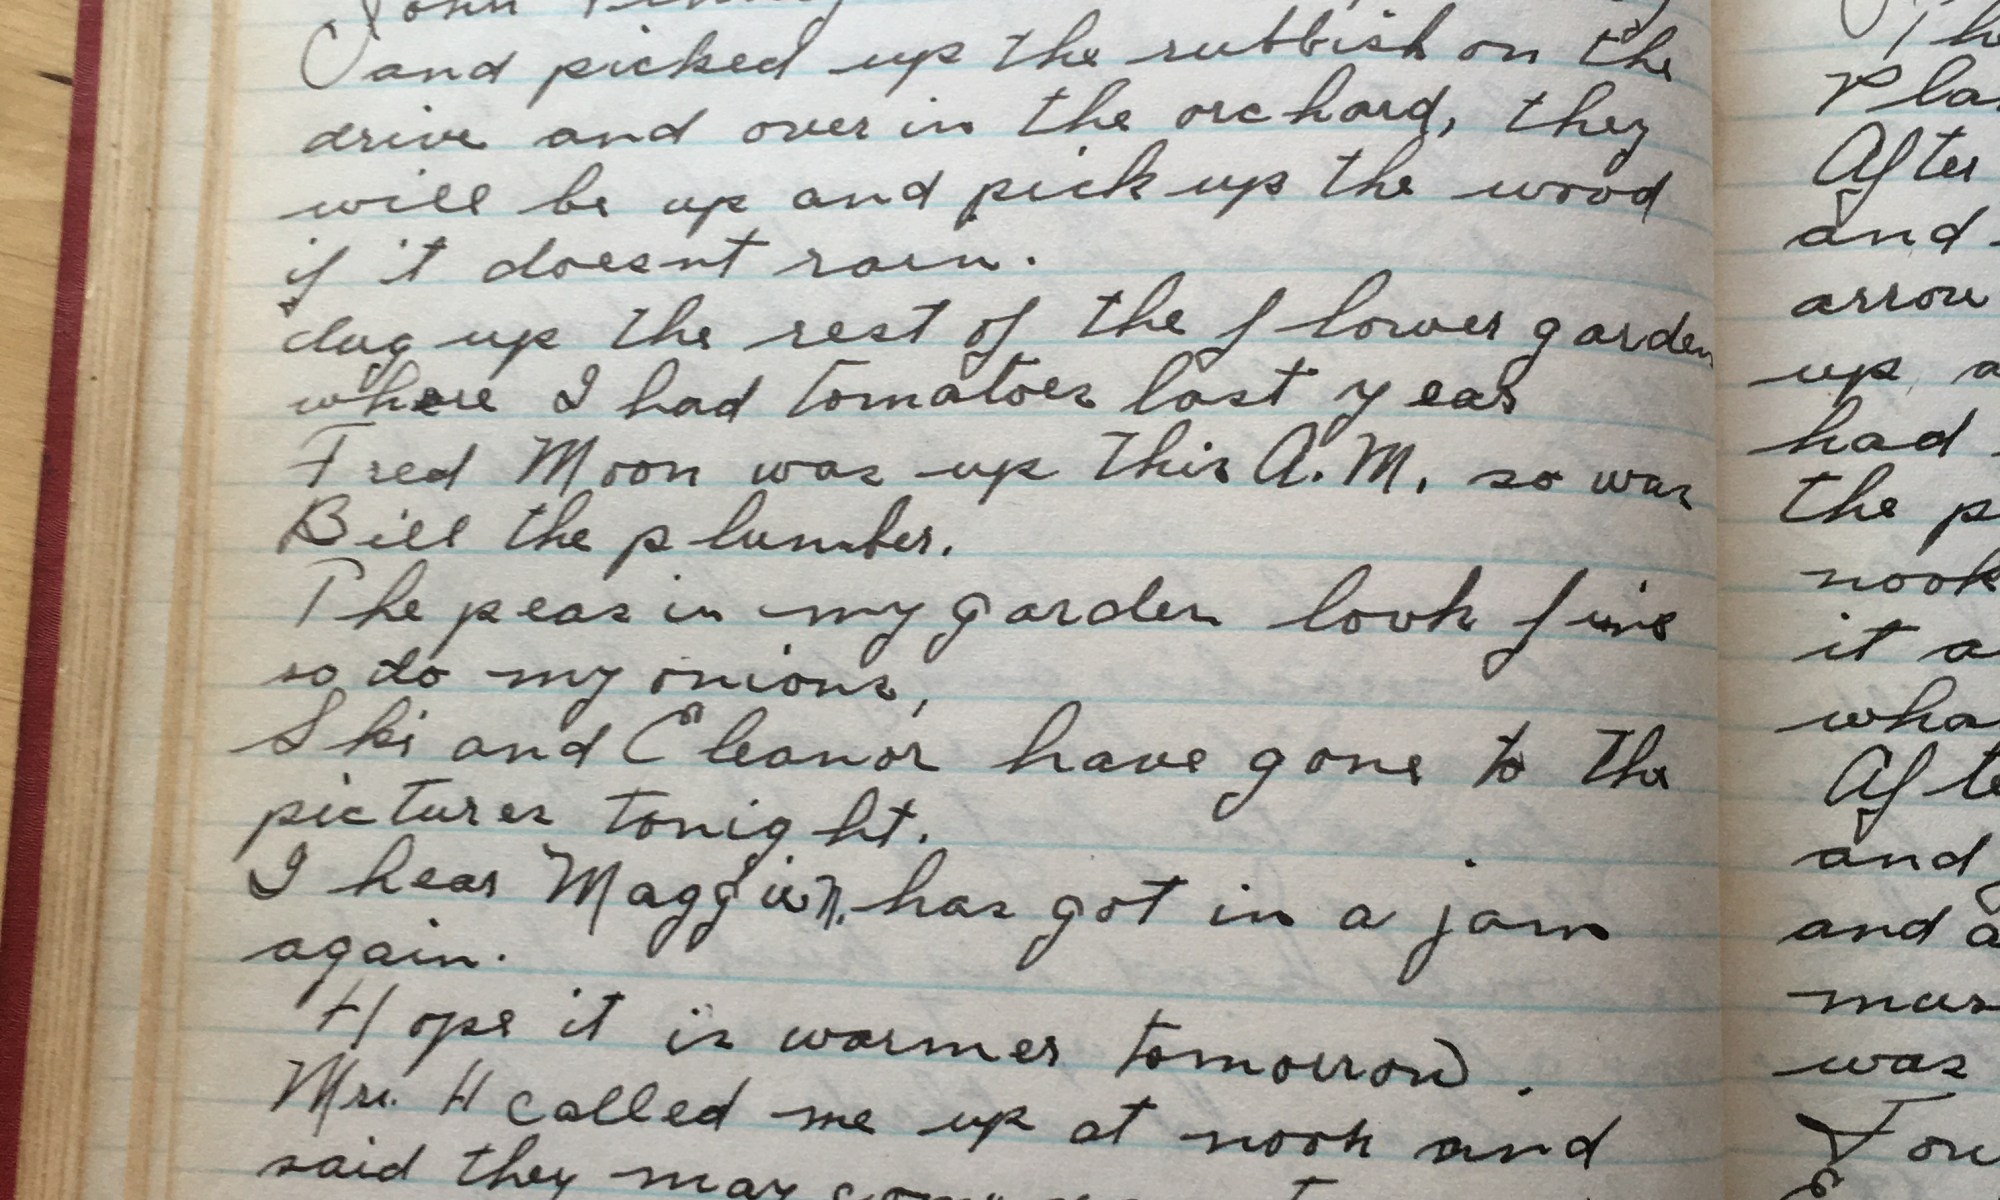 John
and picked up the rubbish on the
drive and over in the orchard, they
will be up and pick up the wood
if it doesnt rain.
dug up the rest of the flower garden
where I had tomatoes last year
Fred Moon was up this A.M. so was
Bill the plumber.
The peas in my garden look fine
so do my onions,
Ski and Eleanor have gone to the
pictures tonight.
I hear Maggie N. has got in a jam
again.
Hope it is warmer tomorrow.
Mrs. H called me up at noon and
said they may
The
After
and
arrow
up
had
the
nook
it
After
and
and
was